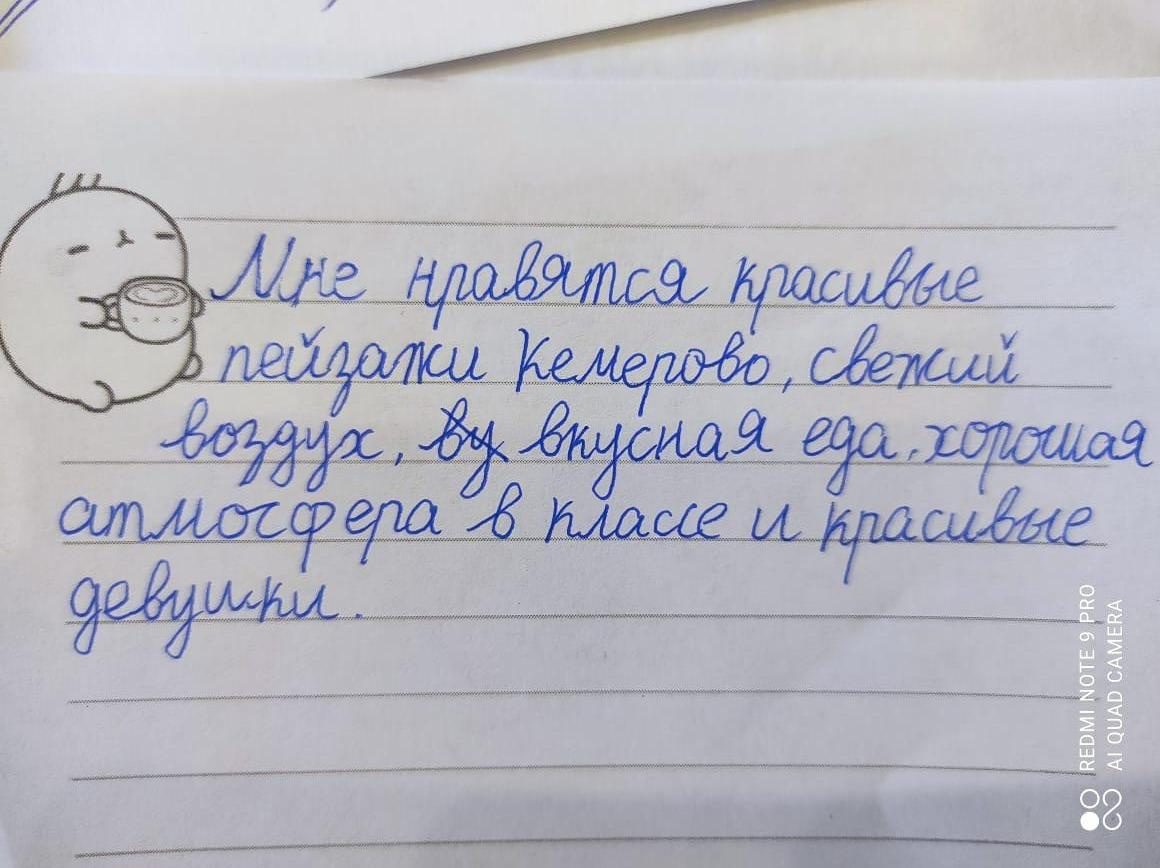 Мне нравятся красивые
пейзажи Кемерово, свежий
воздух, ву вкусная еда, хорошая
атмосфера в классе и красивые
девушки.
REDMI NOTE 9 PRO
AI QUAD CAMERA